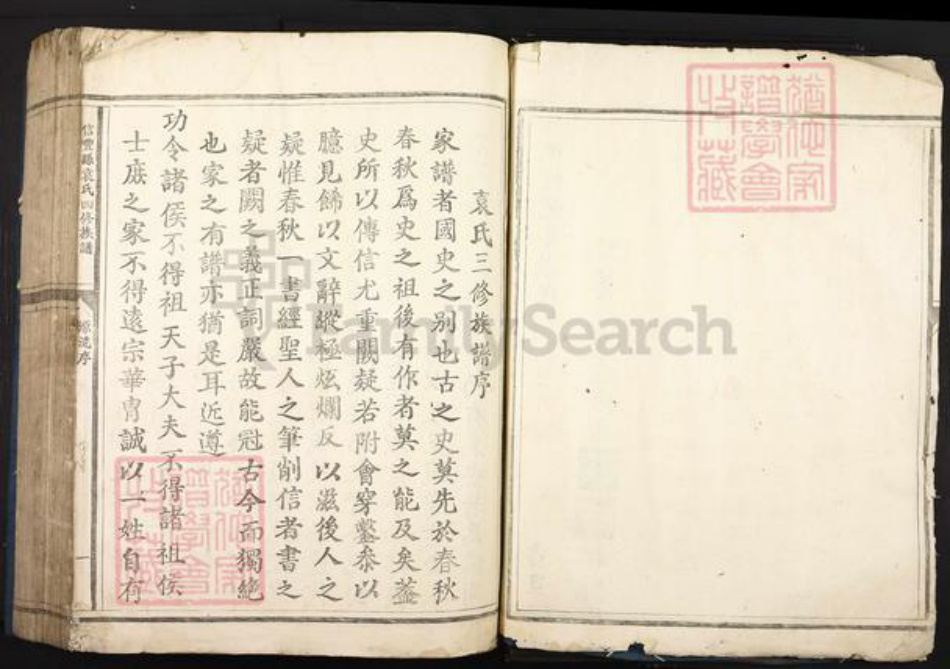 袁氏三修族譜序
家譜者國史之別也古之史莫先於春秋
春秋爲史之祖後有作者莫之能及矣蓋
史所以傳信尤重闕疑若附會穿鑿叅以
臆見餙以文辭縱極炫爛反以滋後人之
疑惟春秋一書經聖人之筆削信者書之
疑者闕之義正詞嚴故能冠古今而獨絶
也家之有譜亦猶是耳近遵
功令諸侯不得祖天子大夫不得諸祖侯
士庶之家不得遠宗華冑誠以一姓自有
信豐縣袁氏四修族譜
源流序
一
FamilySearch
譜學會
收藏